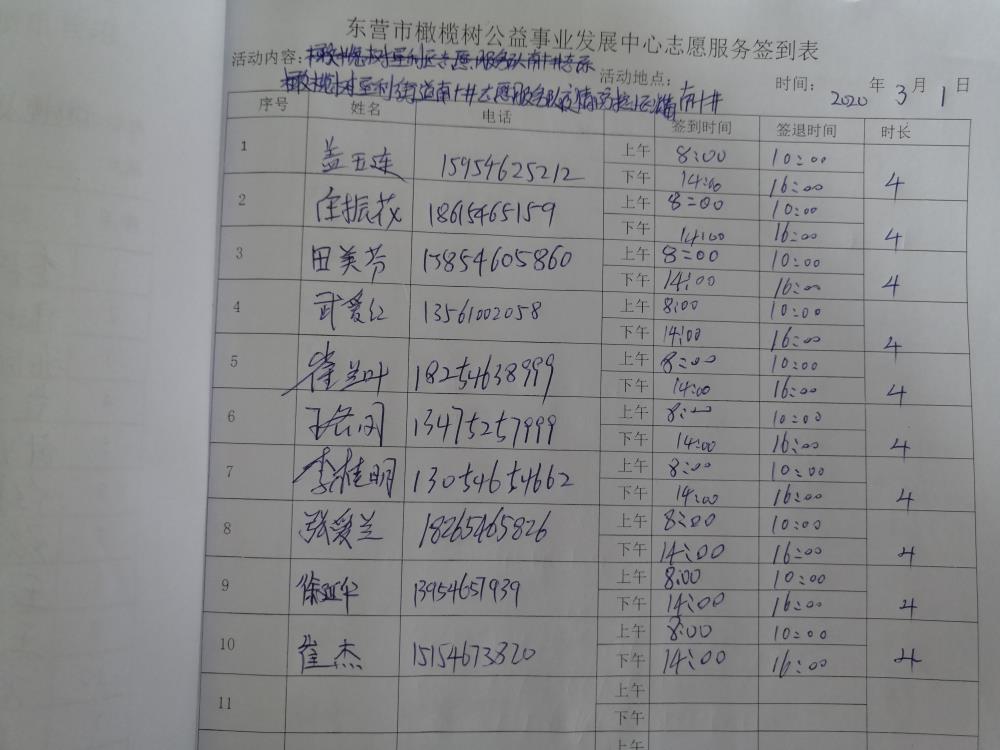 东营市橄榄树公益事业发展中心志愿服务签到表
活动内容: 活动地点: 南十井 时间: 2020 年 3 月 1 日
橄榄树垦利街道南十井志愿服务队疫情防控
序号 姓名 电话 签到时间 签退时间 时长
1 盖玉连 15954625212 上午 8:00 10:00
下午 14:00 16:00 4
2 振茂 18615465159 上午 8:00 10:00
下午 14:00 16:00 4
3 田美芳 13854605860 上午 8:00 10:00
下午 14:00 16:00 4
4 武爱红 13561002058 上午 8:00 10:00
下午 14:00 16:00 4
5 崔兰叶 18254638999 上午 8:00 10:00
下午 14:00 16:00 4
6 13475257999 上午 8:00 10:00
下午 14:00 16:00 4
7 李桂明 13054654662 上午 8:00 10:00
下午 14:00 16:00 4
8 张爱兰 18265465826 上午 8:00 10:00
下午 14:00 16:00 4
9 徐延华 13954657939 上午 8:00 10:00
下午 14:00 16:00 4
10 崔杰 15154673820 上午 8:00 10:00
下午 14:00 16:00 4
11 上午
下午
上午